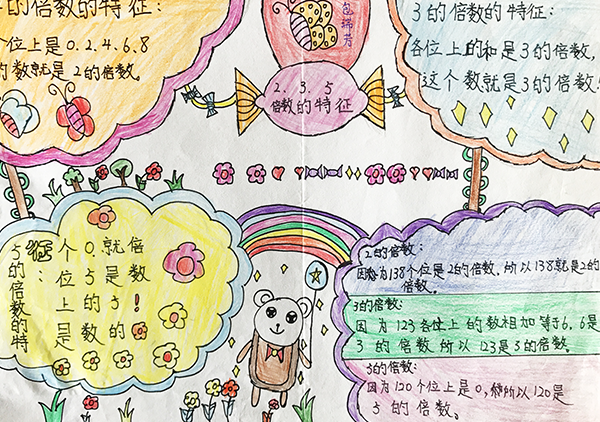 2的倍数的特征:
个位上是0.2.4.6.8
的数就是2的倍数。
2.3.5
倍数的特征
3的倍数的特征:
各位上的和是3的倍数,
这个数就是3的倍数!
5的倍数的特
征:
个位上是
0.5的数
就是5的
倍数!
2的倍数:
因为138个位是2的倍数,所以138就是2的
倍数。
3的倍数:
因为123各位上的数相加等于6,6是
3的倍数所以123是3的倍数。
5的倍数:
因为120个位上是0,所以120是
5的倍数。